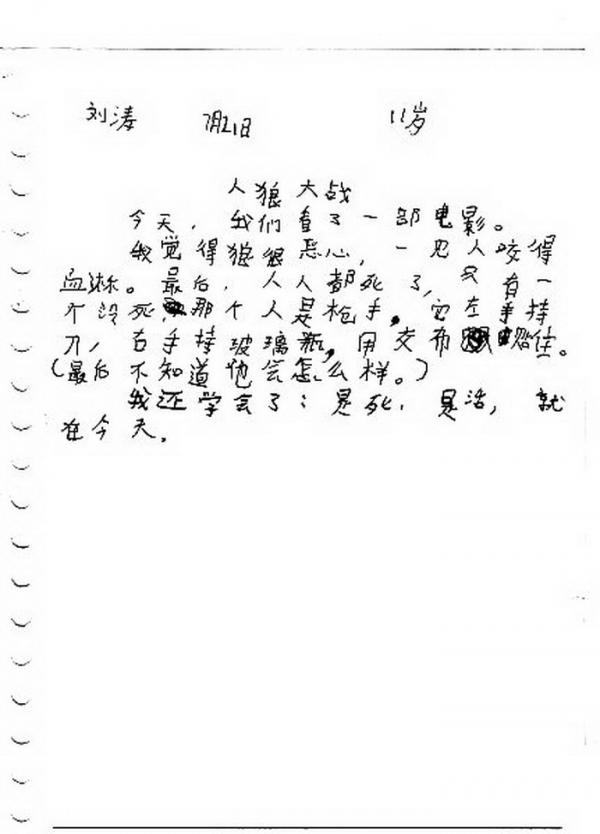 刘涛 7月21日 11岁
人狼大战
今天，我们看了一部电影。
我觉得狼很恶心，一见人咬得
血淋。最后，人人都死了，只有一
个没死，那个人是枪手，它左手持
刀，右手持玻璃瓶，用交布 住。
（最后不知道他会怎么样。）
我还学会了：是死，是活，就
在今天。